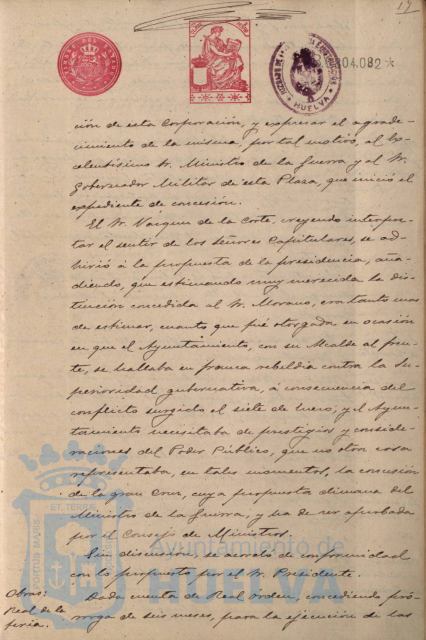 17
004.082 *
HUELVA
ción de esta Corporación, y expresar el agrade-
cimiento de la misma, por tal motivo, al Ex-
celentísimo Sr. Ministro de la Guerra y al Sr.
Gobernador Militar de esta Plaza, que inició el
expediente de concesión.
El Sr. Vázquez de la Corte, creyendo interpre-
tar el sentir de los señores Capitulares, se ad-
hirió á la propuesta de la presidencia, aña-
diendo, que estimando muy merecida la dis-
tinción concedida al Sr. Morano, era tanto mas
de estimar, cuanto que fué otorgada en ocasión
en que el Ayuntamiento, con su Alcalde al fren-
te, se hallaba en franca rebeldía contra la Su-
perioridad gubernativa, á consecuencia del
conflicto surgido el siete de Enero; y el Ayun-
tamiento necesitaba de prestigios y conside-
raciones del Poder Público, que no otra cosa
representaba, en tales momentos, la concesión
de la gran Cruz, cuya propuesta dimana del
Ministro de la Guerra, y ha de ser aprobada
por el Consejo de Ministros.
Sin discusión se acordó de conformidad
con lo propuesto por el Sr. Presidente.
Obras:
Real de la
feria.
Dada cuenta de Real orden, concediendo pró-
rroga de seis meses, para la ejecución de las
PORTUS MARIS
ET TERRE
Ayuntamiento de
HUELVA